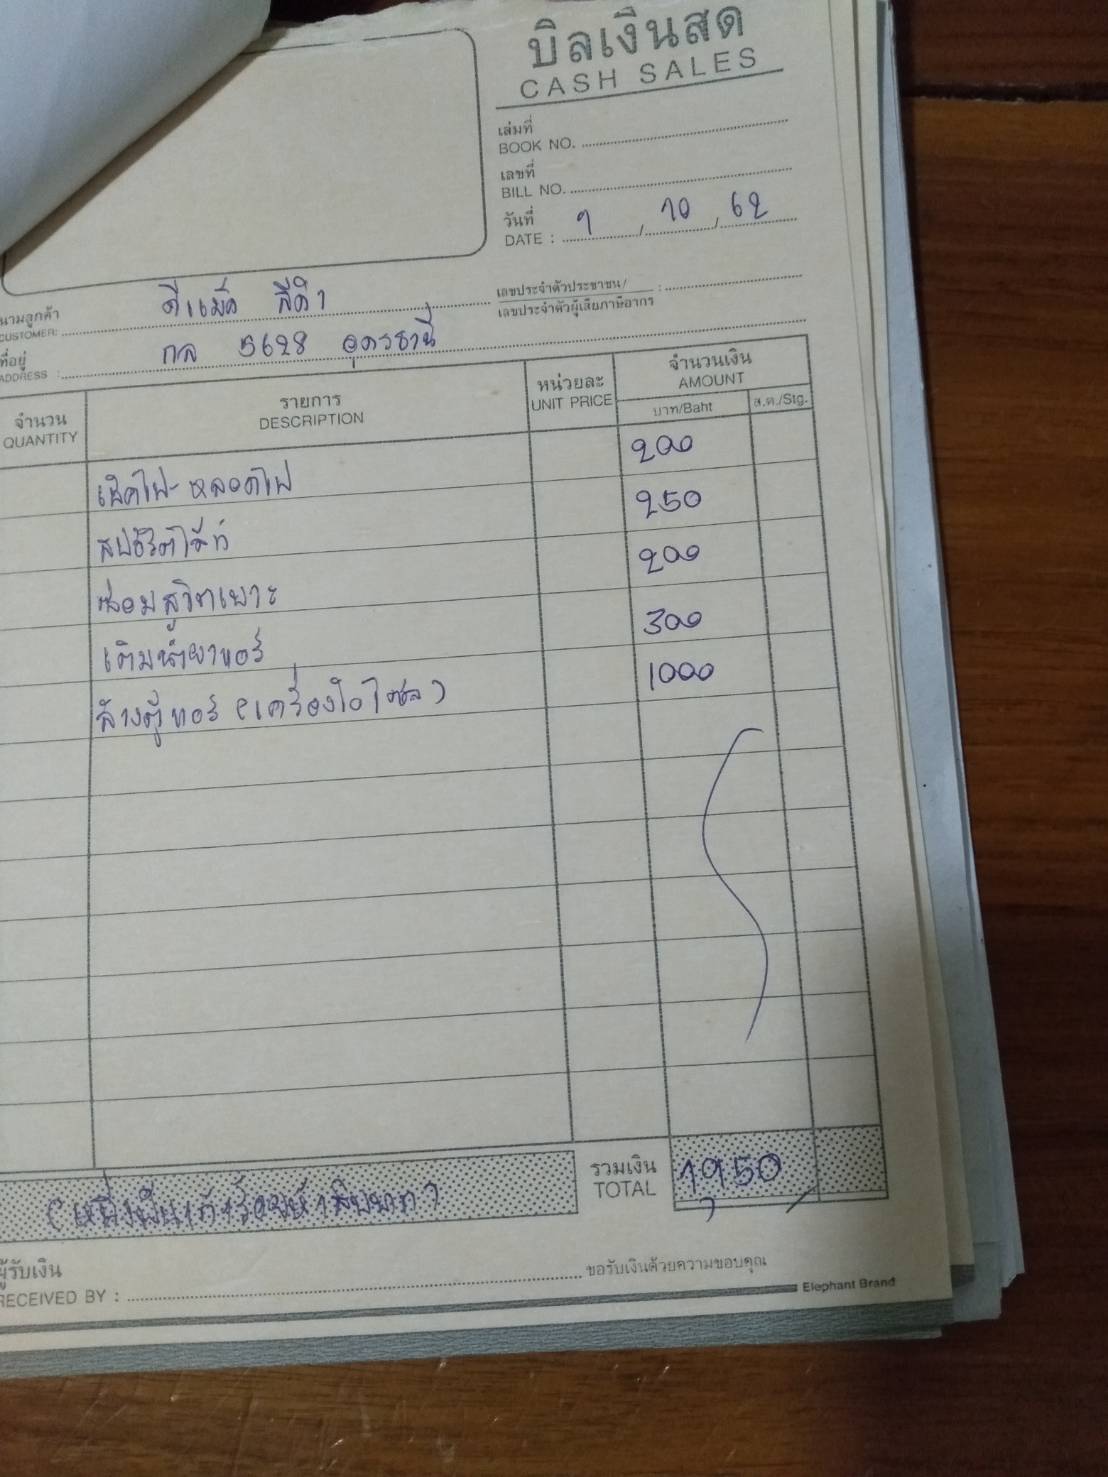 บิลเงินสด
CASH SALES
เล่มที่
BOOK NO.
เลขที่
BILL NO.
วันที่
DATE : 9 / 10 / 62
นามลูกค้า ดีแม็ค สีดำ
CUSTOMER:
เลขประจำตัวประชาชน/ :
เลขประจำตัวผู้เสียภาษีอากร
ที่อยู่ กล 5628 อุดรธานี
ADDRESS :
จำนวน รายการ หน่วยละ จำนวนเงิน
QUANTITY DESCRIPTION UNIT PRICE AMOUNT
บาท/Baht ส.ต./Stg.
เช็คไฟ-หลอดไฟ 200
สปอร์ตไล้ท์ 250
ซ่อมสวิตเบาะ 200
เติมน้ำยาแอร์ 300
ล้างตู้แอร์ (เครื่องใบโอโซล) 1000
รวมเงิน
TOTAL 1,950
(หนึ่งพันเก้าร้อยห้าสิบบาท)
ผู้รับเงิน
RECEIVED BY :
ขอรับเงินด้วยความขอบคุณ
Elephant Brand